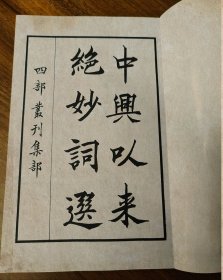 中興以来
絕妙詞選
四部叢刊集部